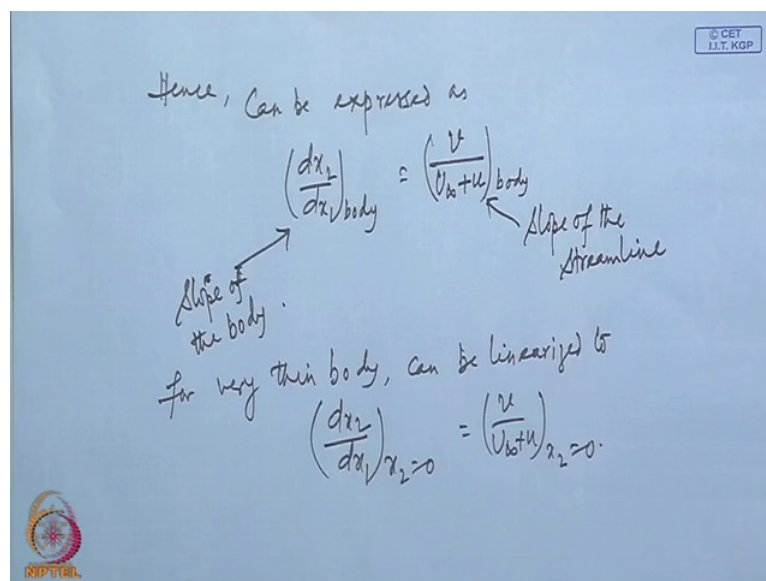 © CET
I.I.T. KGP
Hence, Can be expressed as
(dx₂/dx₁)body = (v/(U∞+u))body
Slope of the body.
Slope of the streamline
for very thin body, can be linearized to
(dx₂/dx₁)x₂=0 = (v/(U∞+u))x₂=0.
NPTEL